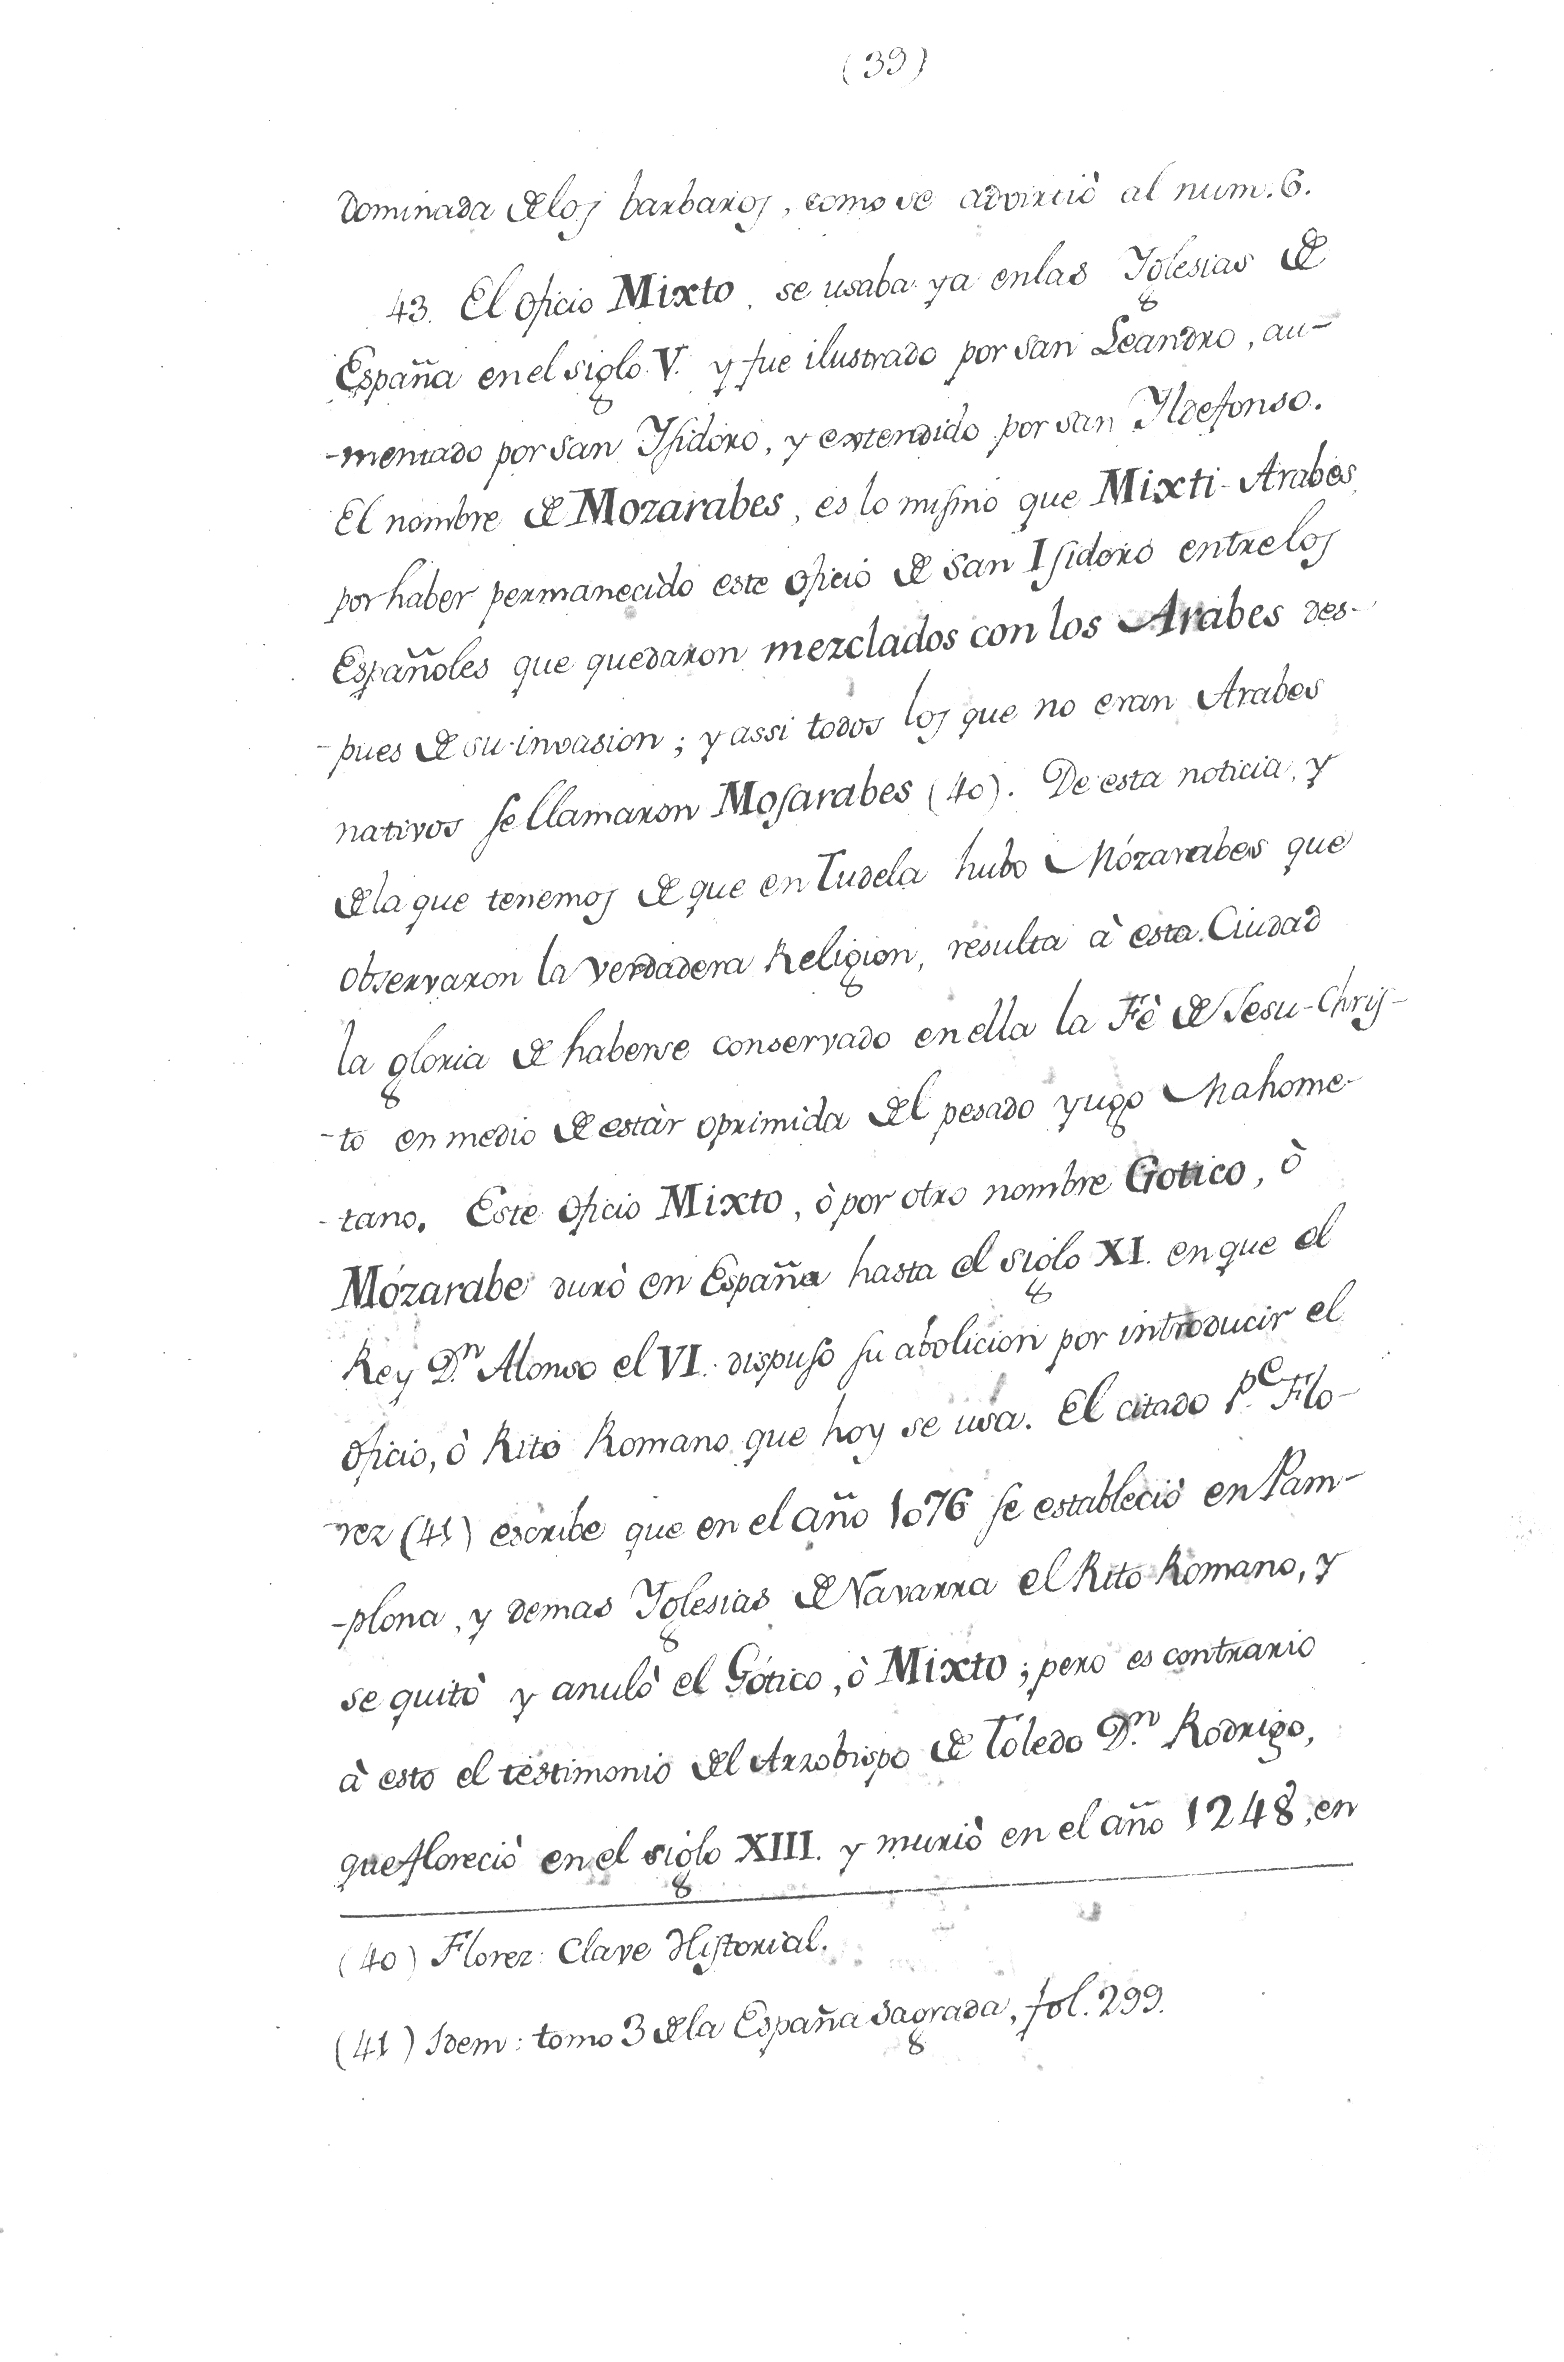 (39)
dominada delos barbaros, como se advirtiò al num. 6.
43. El oficio Mixto, se usaba ya enlas Yglesias de
España enel siglo V. y fue ilustrado por san Leandro, au-
-mentado por san Ysidoro, y extendido por san Yldefonso.
El nombre de Mozarabes, es lo mismo que Mixti-Arabes,
por haber permanecido este oficio de san Isidoro entrelos
Españoles que quedaron mezclados con los Arabes des-
-pues de su invasion; y assi todos los que no eran Arabes
nativos se llamaron Mosarabes (40). De esta noticia, y
dela que tenemos de que en Tudela hubo Mózarabes que
observaron la verdadera Religion, resulta à esta Ciudad
la gloria de haberse conservado enella la Fè de Jesu-Chris-
-to en medio de estàr oprimida del pesado yugo Mahome-
-tano. Este oficio Mixto, ò por otro nombre Gotico, ò
Mózarabe durò en España hasta el siglo XI. en que el
Rey D.ⁿ Alonso el VI. dispuso su abolicion por introducir el
oficio, ò Rito Romano que hoy se usa. El citado P.ᵉ Flo-
-rez (41) escribe que en el año 1076 se estableciò en Pam-
-plona, y demas Yglesias de Navarra el Rito Romano, y
se quitò y anulò el Gótico, ò Mixto; pero es contrario
à esto el testimonio del Arzobispo de Toledo D.ⁿ Rodrigo,
que floreciò en el siglo XIII. y muriò en el año 1248, en
(40) Florez: Clave Historial.
(41) Idem: tomo 3 dela España Sagrada, fol. 299.